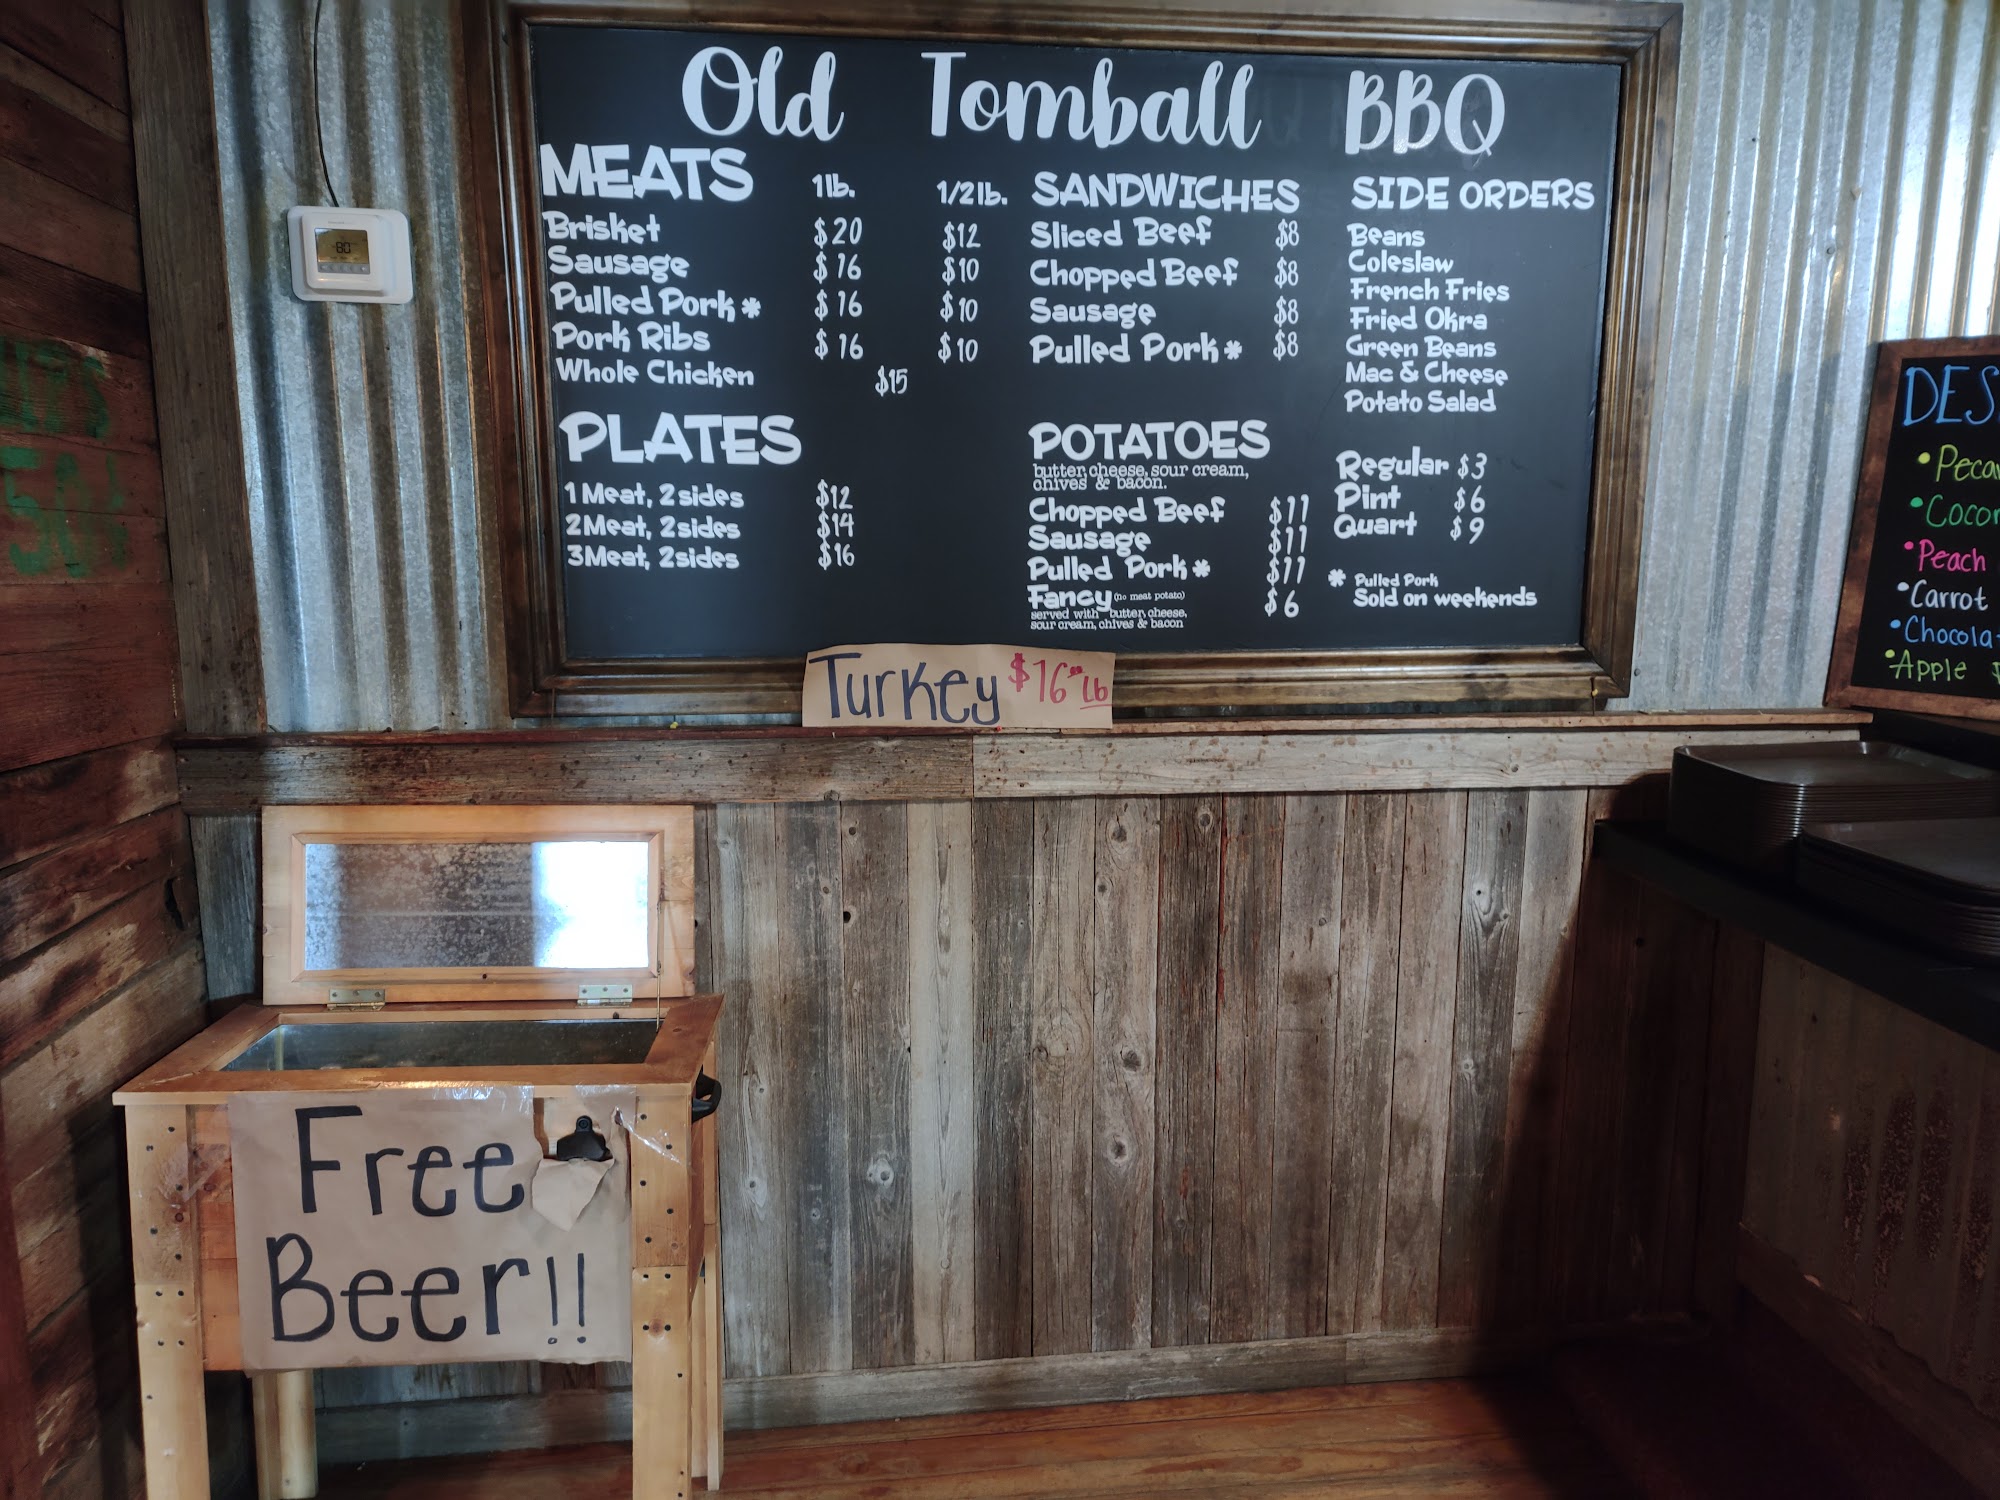 Old Tomball BBQ
MEATS 1 lb. 1/2 lb.
Brisket $20 $12
Sausage $16 $10
Pulled Pork * $16 $10
Pork Ribs $16 $10
Whole Chicken $15
PLATES
1 Meat, 2 sides $12
2 Meat, 2 sides $14
3 Meat, 2 sides $16
SANDWICHES
Sliced Beef $8
Chopped Beef $8
Sausage $8
Pulled Pork * $8
POTATOES
butter, cheese, sour cream,
chives & bacon.
Chopped Beef $11
Sausage $11
Pulled Pork * $11
Fancy (no meat potato) $6
served with butter, cheese,
sour cream, chives & bacon
SIDE ORDERS
Beans
Coleslaw
French Fries
Fried Okra
Green Beans
Mac & Cheese
Potato Salad
Regular $3
Pint $6
Quart $9
* Pulled Pork
Sold on weekends
Turkey $16 Lb
80
• Peach
• Carrot
• Apple $
Free
Beer!!